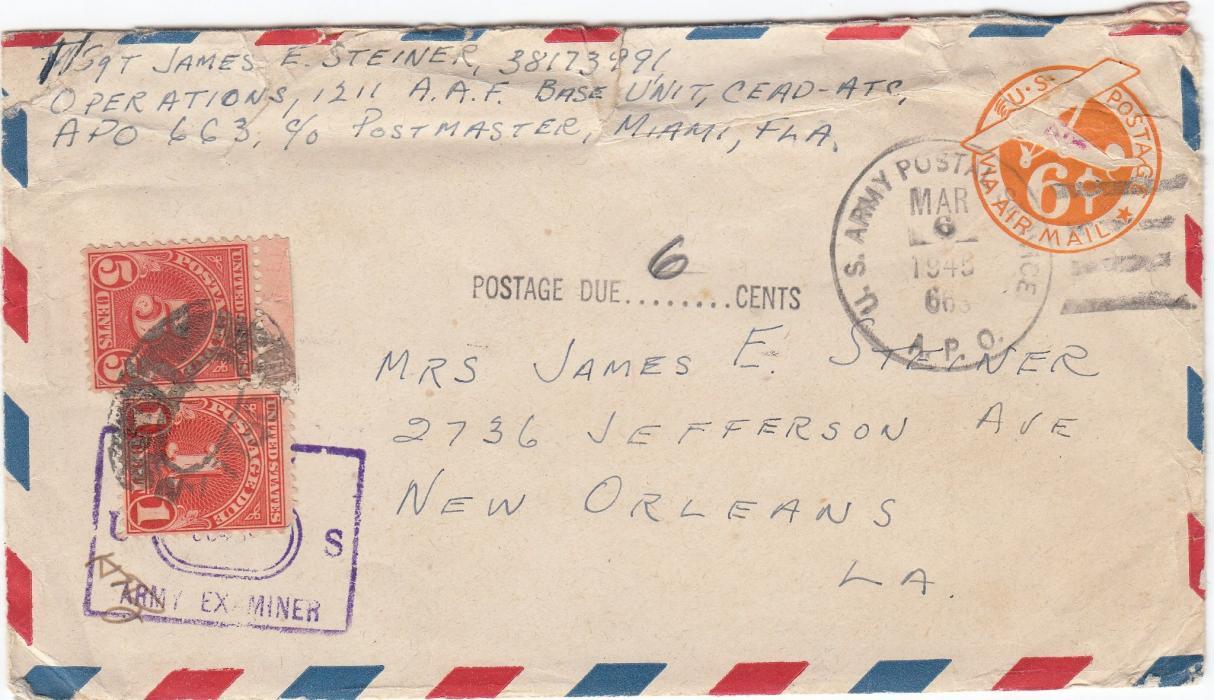 T/SGT JAMES E. STEINER, 38173991
OPERATIONS, 1211 A.A.F. BASE UNIT, CEAD-ATC,
APO 663, c/o POSTMASTER, MIAMI, FLA.
U.S. POSTAGE
6¢
VIA AIR MAIL
U.S. ARMY POSTAL SERVICE
MAR
6
1945
663
A.P.O.
6
POSTAGE DUE........CENTS
5 CENTS 5
POSTAGE DUE
UNITED STATES
1 1
POSTAGE DUE
UNITED STATES
MRS JAMES E. STEINER
2736 JEFFERSON AVE
NEW ORLEANS
LA.
U S
ARMY EXAMINER